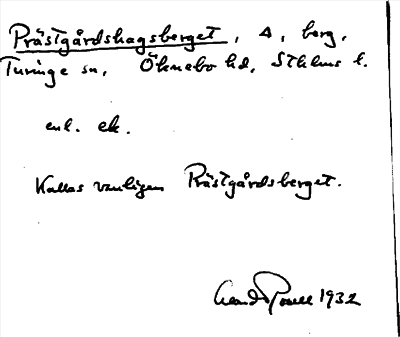 Prästgårdshagsberget, A, berg,
Turinge sn, Öknebo hd, Sthlms l.
enl. ek.
Kallas vanligen Prästgårdsberget.
1932